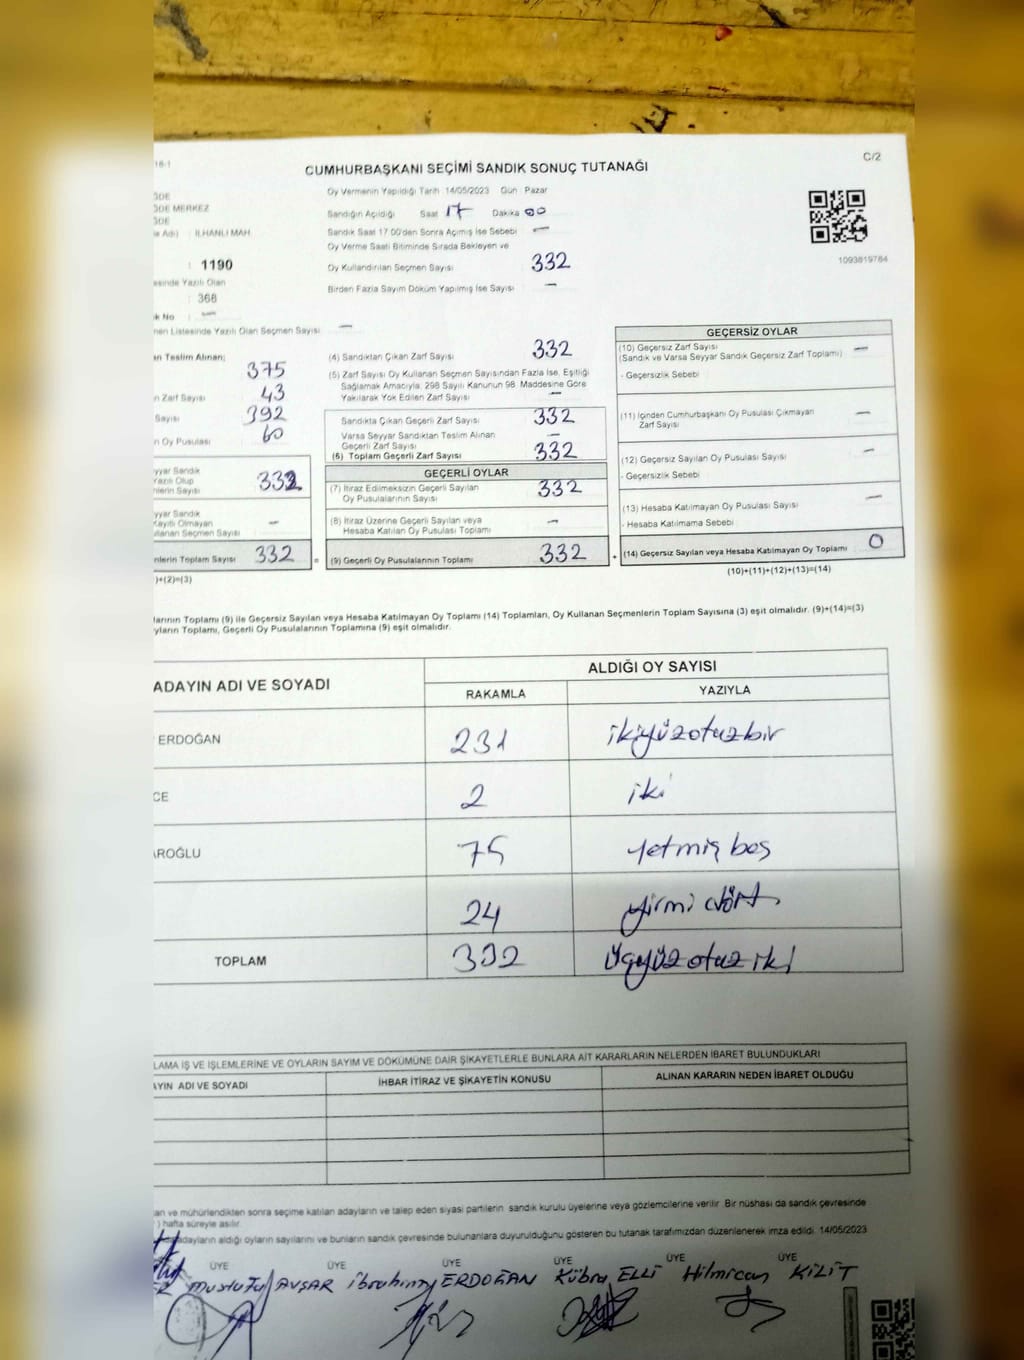 18-1
C/2
CUMHURBAŞKANI SEÇİMİ SANDIK SONUÇ TUTANAĞI
ĞDE
ĞDE MERKEZ
ĞDE
Adı) : İLHANLI MAH
: 1190
esinde Yazılı Olan
: 368
k No : —
Oy Vermenin Yapıldığı Tarih 14/05/2023 Gün Pazar
Sandığın Açıldığı Saat 17 Dakika 00
Sandık Saat 17.00'den Sonra Açılmış İse Sebebi —
Oy Verme Saati Bitiminde Sırada Bekleyen ve
Oy Kullandırılan Seçmen Sayısı 332
Birden Fazla Sayım Döküm Yapılmış İse Sayısı —
1093819784
men Listesinde Yazılı Olan Seçmen Sayısı —
an Teslim Alınan;
375
n Zarf Sayısı 43
Sayısı 392
n Oy Pusulası 60
yyar Sandık
Yazılı Olup
nlerin Sayısı 332
yyar Sandık
Kayıtlı Olmayan
ullanan Seçmen Sayısı —
nlerin Toplam Sayısı 332 =
)+(2)=(3)
(4) Sandıktan Çıkan Zarf Sayısı 332
(5) Zarf Sayısı Oy Kullanan Seçmen Sayısından Fazla İse, Eşitliği
Sağlamak Amacıyla, 298 Sayılı Kanunun 98. Maddesine Göre
Yakılarak Yok Edilen Zarf Sayısı —
Sandıkta Çıkan Geçerli Zarf Sayısı 332
Varsa Seyyar Sandıktan Teslim Alınan
Geçerli Zarf Sayısı —
(6) Toplam Geçerli Zarf Sayısı 332
GEÇERLİ OYLAR
(7) İtiraz Edilmeksizin Geçerli Sayılan
Oy Pusulalarının Sayısı 332
(8) İtiraz Üzerine Geçerli Sayılan veya
Hesaba Katılan Oy Pusulası Toplamı —
(9) Geçerli Oy Pusulalarının Toplamı 332 +
GEÇERSİZ OYLAR
(10) Geçersiz Zarf Sayısı —
(Sandık ve Varsa Seyyar Sandık Geçersiz Zarf Toplamı)
- Geçersizlik Sebebi
(11) İçinden Cumhurbaşkanı Oy Pusulası Çıkmayan
Zarf Sayısı —
(12) Geçersiz Sayılan Oy Pusulası Sayısı —
- Geçersizlik Sebebi
(13) Hesaba Katılmayan Oy Pusulası Sayısı —
- Hesaba Katılmama Sebebi
(14) Geçersiz Sayılan veya Hesaba Katılmayan Oy Toplamı 0
(10)+(11)+(12)+(13)=(14)
larının Toplamı (9) ile Geçersiz Sayılan veya Hesaba Katılmayan Oy Toplamı (14) Toplamları, Oy Kullanan Seçmenlerin Toplam Sayısına (3) eşit olmalıdır. (9)+(14)=(3)
yların Toplamı, Geçerli Oy Pusulalarının Toplamına (9) eşit olmalıdır.
ADAYIN ADI VE SOYADI
ALDIĞI OY SAYISI
RAKAMLA YAZIYLA
ERDOĞAN 231 ikiyüzotuzbir
CE 2 iki
AROĞLU 75 yetmiş beş
24 yirmi dört
TOPLAM 332 üçyüzotuziki
LAMA İŞ VE İŞLEMLERİNE VE OYLARIN SAYIM VE DÖKÜMÜNE DAİR ŞİKAYETLERLE BUNLARA AİT KARARLARIN NELERDEN İBARET BULUNDUKLARI
AYIN ADI VE SOYADI İHBAR İTİRAZ VE ŞİKAYETİN KONUSU ALINAN KARARIN NEDEN İBARET OLDUĞU
an ve mühürlendikten sonra seçime katılan adayların ve talep eden siyasi partilerin sandık kurulu üyelerine veya gözlemcilerine verilir. Bir nüshası da sandık çevresinde
) hafta süreyle asılır.
adayların aldığı oyların sayılarını ve bunların sandık çevresinde bulunanlara duyurulduğunu gösteren bu tutanak tarafımızdan düzenlenerek imza edildi. 14/05/2023
ÜYE ÜYE ÜYE ÜYE ÜYE
AVŞAR İbrahim ERDOĞAN Kübra ELLİ Hilmican KİLİT